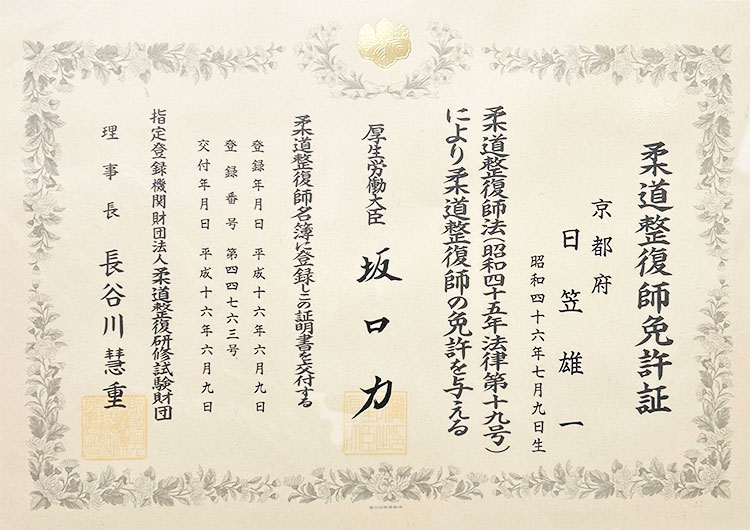 柔道整復師免許証
京都府
日笠雄一
昭和四十六年七月九日生
柔道整復師法(昭和四十五年法律第十九号)
により柔道整復師の免許を与える
厚生労働大臣 坂口力
柔道整復師名簿に登録しこの証明書を交付する
登録年月日 平成十六年六月九日
登録番号 第四四七六三号
交付年月日 平成十六年六月九日
指定登録機関財団法人柔道整復研修試験財団
理事長 長谷川慧重